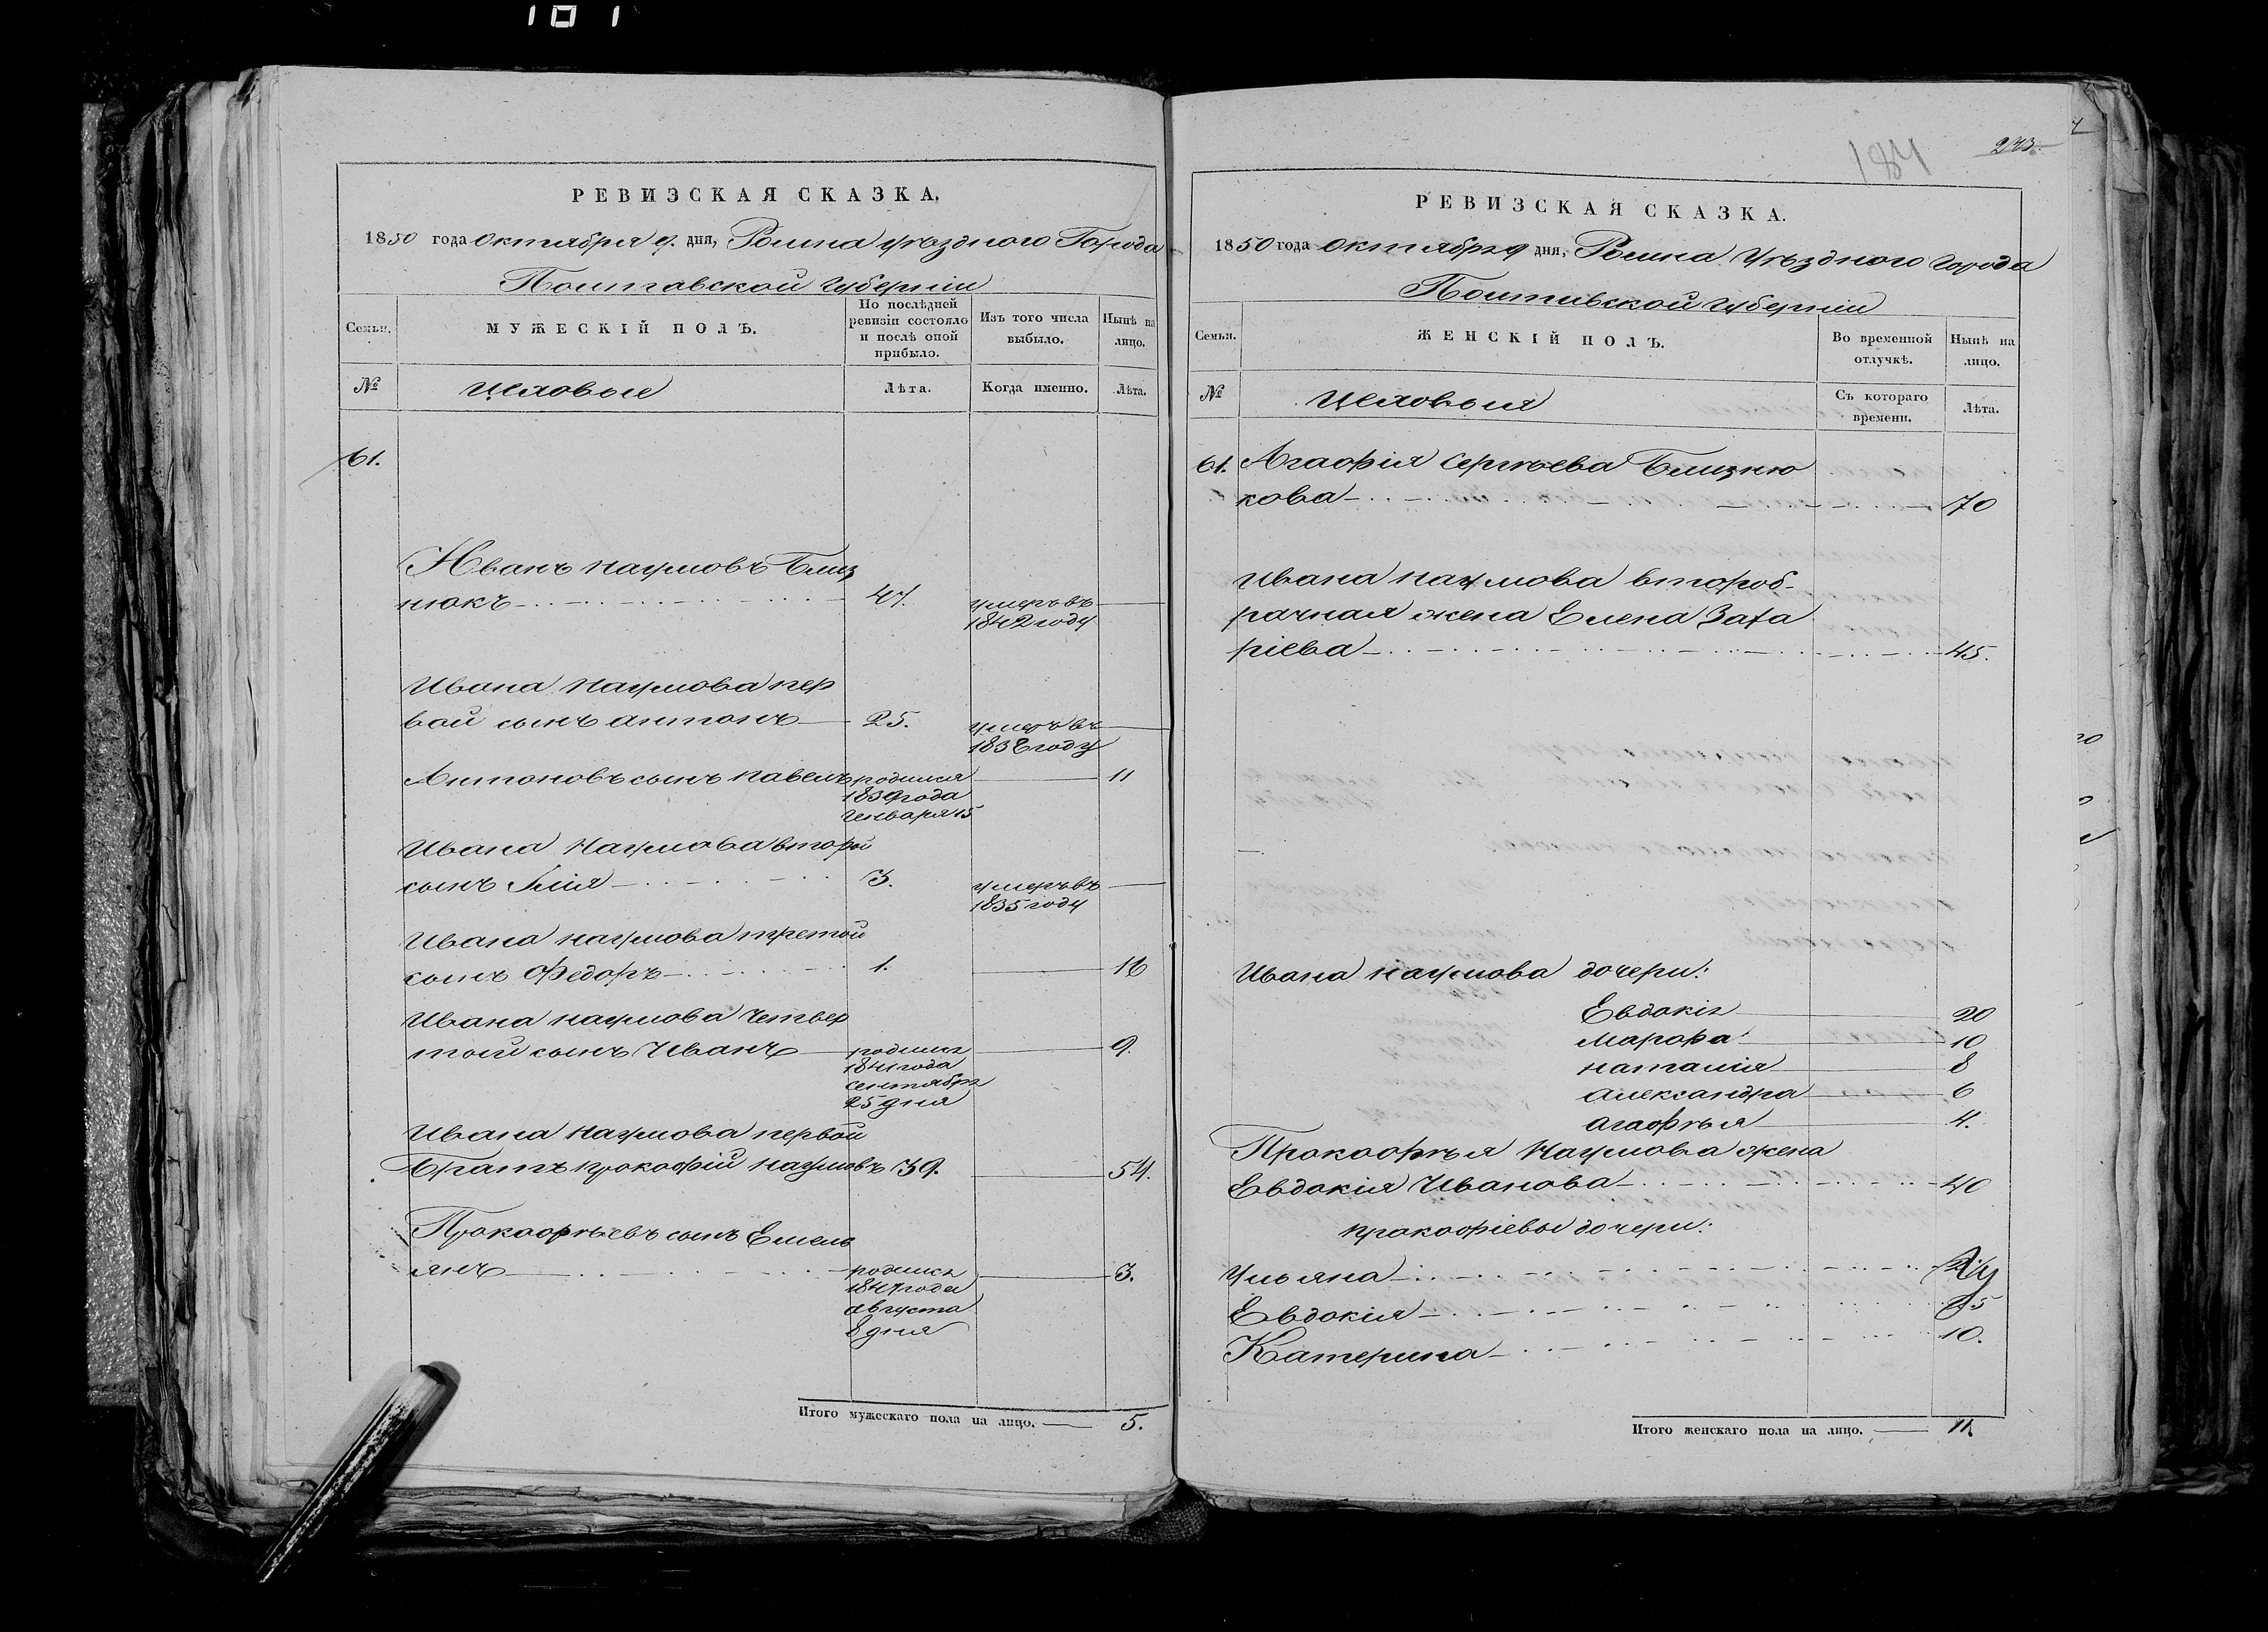 101
РЕВИЗСКАЯ СКАЗКА.
1850 года Октября 9. дня, Ромна уѣзднаго Города
Полтавской Губерніи
Семьи.
МУЖЕСКІЙ ПОЛЪ.
По послѣдней ревизіи состояло и послѣ оной прибыло.
Изъ того числа выбыло.
Нынѣ на лицо.
№
Цеховые
Лѣта.
Когда именно.
Лѣта.
61.
Иванъ Наумовъ Близ
нюкъ 47. умеръ въ
1842 году
Ивана Наумова пер
вой сынъ Антонъ 25. умеръ въ
1838 году
Антоновъ сынъ Павелъ родился 11
1839 года
Генваря 15
Ивана Наумова второй
сынъ Илія 3. умеръ въ
1835 году
Ивана Наумова третой
сынъ Федоръ 1. 16
Ивана Наумова Четвер
той сынъ Иванъ родился 9.
1841 года
сентября
25 дня
Ивана Наумова первой
Братъ Прокофій Наумовъ 39. 54.
Прокофьевъ сынъ Емель
янъ родился 3.
1847 года
августа
8 дня
Итого мужескаго пола на лицо. 5.
184
243.
РЕВИЗСКАЯ СКАЗКА.
1850 года Октября 9 дня, Ромна Уѣзднаго Города
Полтавской Губерніи
Семьи.
ЖЕНСКІЙ ПОЛЪ.
Во временной отлучкѣ.
Нынѣ на лицо.
№
Цеховыя
Съ котораго времени.
Лѣта.
61. Агафія Сергѣева Близню
кова 70
Ивана Наумова второб-
рачная жена Елена Заха
ріева 45.
Ивана Наумова дочери:
Евдокія 20
Марфа 10
Наталія 8
Александра 6
Агафья 4.
Прокофья Наумова жена
Евдокія Иванова 40
Прокофіевы дочери:
Ульяна
Евдокія
Катерина 10.
Итого женскаго пола на лицо. 11.